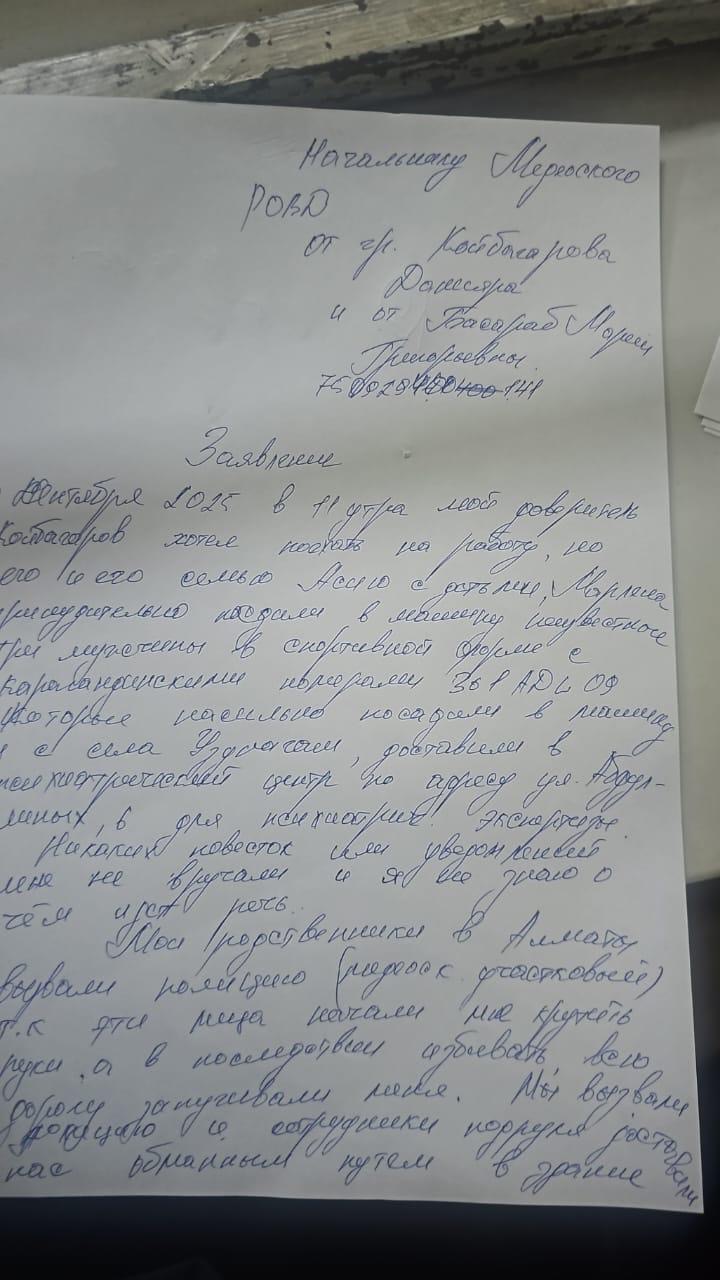 Начальнику Медеоского
РОВД
от гр. Койбагарова
Данияра
и от Басараб Марии
Григорьевны
141
Заявление
Сентября 2025 в 11 утра мой доверитель
Койбагаров хотел поехать на работу, но
его и его семью Асию с детьми, Марлена
принудительно посадили в машину неизвестные
три мужчины в спортивной форме с
карагандинскими номерами 361 ADL 09
которые насильно посадили в машину
и с села Узынагаш, доставили в
психиатрический центр по адресу ул. Абдул-
линых, 6 для психиатрич. экспертизы.
Никаких повесток или уведомлений
мне не вручали и я не знаю о
чём идёт речь.
Мои родственники в Алматы
вызвали полицию (медеоск. участковый)
т.к эти лица начали мне крутить
руки, а в последствии избивать, всю
дорогу запугивали меня. Мы вызвали
полицию и сотрудники патруля доставили
нас обманным путем в здание